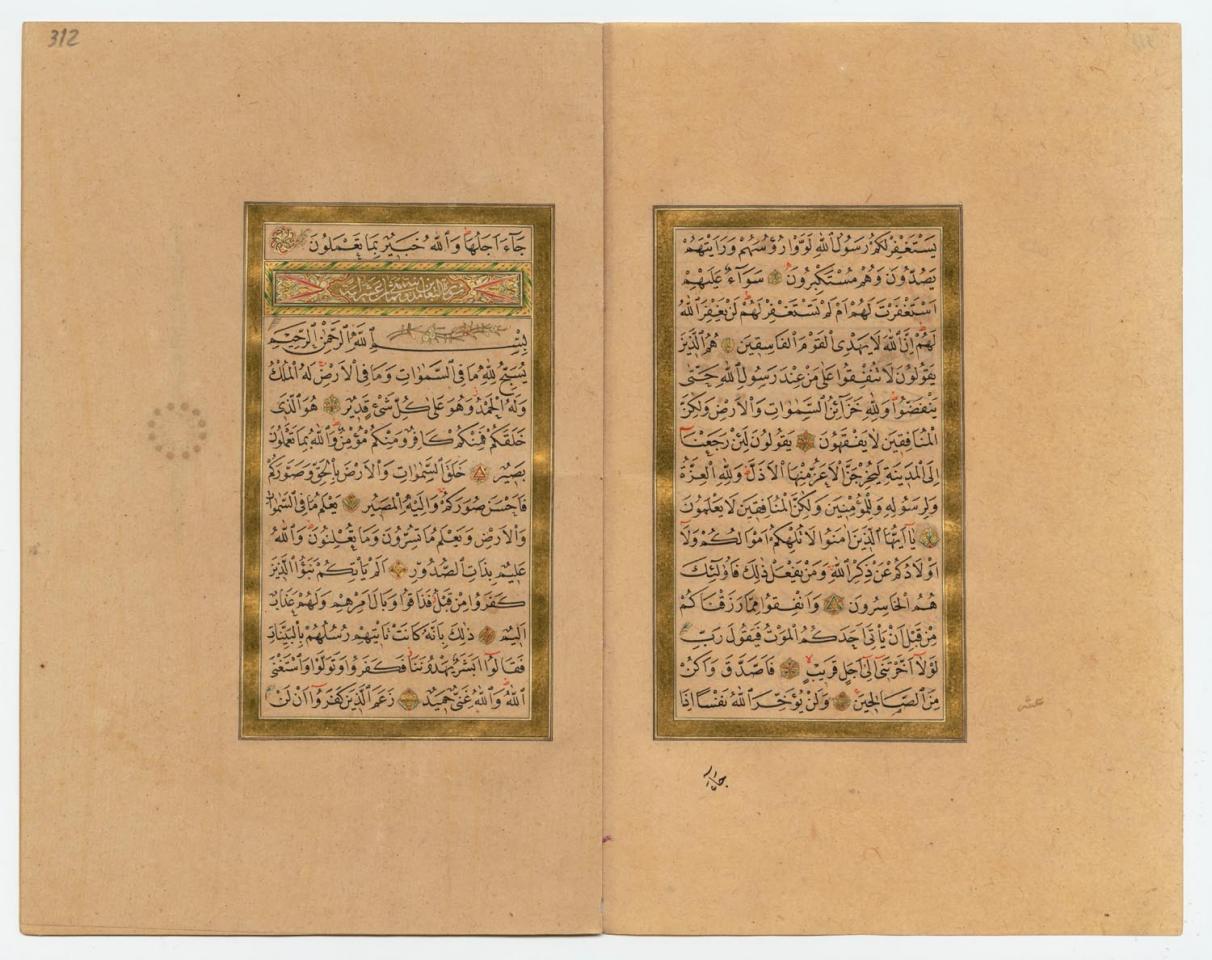 يَسْتَغْفِرْ لَكُمْ رَسُولُ اللهِ لَوَّوْا رُؤُسَهُمْ وَرَاَيْتَهُمْ
يَصُدُّونَ وَهُمْ مُسْتَكْبِرُونَ سَوَآءٌ عَلَيْهِمْ
اَسْتَغْفَرْتَ لَهُمْ اَمْ لَمْ تَسْتَغْفِرْ لَهُمْ لَنْ يَغْفِرَ اللهُ
لَهُمْ اِنَّ اللهَ لَا يَهْدِى الْقَوْمَ الْفَاسِقِينَ هُمُ الَّذِينَ
يَقُولُونَ لَا تُنْفِقُوا عَلٰى مَنْ عِنْدَ رَسُولِ اللهِ حَتّٰى
يَنْفَضُّوا وَلِلّٰهِ خَزَآئِنُ السَّمٰوَاتِ وَالْاَرْضِ وَلٰكِنَّ
الْمُنَافِقِينَ لَا يَفْقَهُونَ يَقُولُونَ لَئِنْ رَجَعْنَآ
اِلَى الْمَدِينَةِ لَيُخْرِجَنَّ الْاَعَزُّ مِنْهَا الْاَذَلَّ وَلِلّٰهِ الْعِزَّةُ
وَلِرَسُولِهِ وَلِلْمُؤْمِنِينَ وَلٰكِنَّ الْمُنَافِقِينَ لَا يَعْلَمُونَ
يَآ اَيُّهَا الَّذِينَ اٰمَنُوا لَا تُلْهِكُمْ اَمْوَالُكُمْ وَلَآ
اَوْلَادُكُمْ عَنْ ذِكْرِ اللهِ وَمَنْ يَفْعَلْ ذٰلِكَ فَاُولٰئِكَ
هُمُ الْخَاسِرُونَ وَاَنْفِقُوا مِمَّا رَزَقْنَاكُمْ
مِنْ قَبْلِ اَنْ يَاْتِىَ اَحَدَكُمُ الْمَوْتُ فَيَقُولَ رَبِّ
لَوْلَآ اَخَّرْتَنِى اِلٰى اَجَلٍ قَرِيبٍ فَاَصَّدَّقَ وَاَكُنْ
مِنَ الصَّالِحِينَ وَلَنْ يُؤَخِّرَ اللهُ نَفْسًا اِذَا
عشر
جَآءَ
312
جَآءَ اَجَلُهَا وَاللهُ خَبِيرٌ بِمَا تَعْمَلُونَ
سورة التغابن
بِسْمِ اللهِ الرَّحْمٰنِ الرَّحِيمِ
يُسَبِّحُ لِلّٰهِ مَا فِى السَّمٰوَاتِ وَمَا فِى الْاَرْضِ لَهُ الْمُلْكُ
وَلَهُ الْحَمْدُ وَهُوَ عَلٰى كُلِّ شَىْءٍ قَدِيرٌ هُوَ الَّذِى
خَلَقَكُمْ فَمِنْكُمْ كَافِرٌ وَمِنْكُمْ مُؤْمِنٌ وَاللهُ بِمَا تَعْمَلُونَ
بَصِيرٌ خَلَقَ السَّمٰوَاتِ وَالْاَرْضَ بِالْحَقِّ وَصَوَّرَكُمْ
فَاَحْسَنَ صُوَرَكُمْ وَاِلَيْهِ الْمَصِيرُ يَعْلَمُ مَا فِى السَّمٰوَاتِ
وَالْاَرْضِ وَيَعْلَمُ مَا تُسِرُّونَ وَمَا تُعْلِنُونَ وَاللهُ
عَلِيمٌ بِذَاتِ الصُّدُورِ اَلَمْ يَاْتِكُمْ نَبَؤُا الَّذِينَ
كَفَرُوا مِنْ قَبْلُ فَذَاقُوا وَبَالَ اَمْرِهِمْ وَلَهُمْ عَذَابٌ
اَلِيمٌ ذٰلِكَ بِاَنَّهُ كَانَتْ تَاْتِيهِمْ رُسُلُهُمْ بِالْبَيِّنَاتِ
فَقَالُوآ اَبَشَرٌ يَهْدُونَنَا فَكَفَرُوا وَتَوَلَّوْا وَاسْتَغْنَى
اللهُ وَاللهُ غَنِىٌّ حَمِيدٌ زَعَمَ الَّذِينَ كَفَرُوآ اَنْ لَنْ